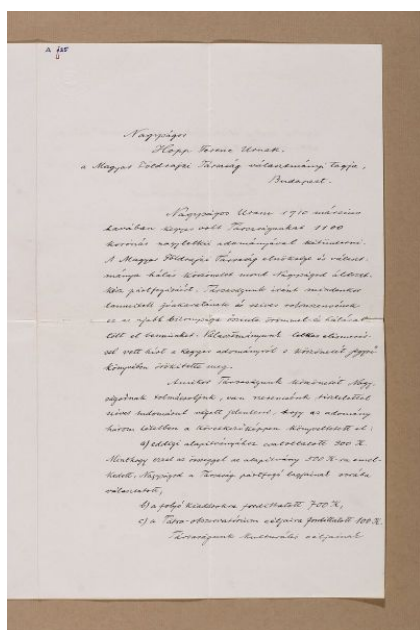 A
Nagyságos
Hopp Ferenc Urnak.
a Magyar Földrajzi Társaság választmányi tagja,
Budapest.
Nagyságos Uram! 1910 március
havában kegyes volt Társaságunkat 1100
koronás nagylelkű adományával kitüntetni.
A Magyar Földrajzi Társaság elnöksége és választ-
mánya hálás köszönetet mond Nagyságod áldozat-
kész pártfogásáért. Társaságunk iránt mindenkor
tanusított jóakaratának és szives
ez az ujabb bizonysága őszinte örömmel és hálával
tölt el bennünket. Választmányunk lelkes elismerés-
sel vett hirt a kegyes adományról s köszönetét jegyző
könyvében örökítette meg.
Amikor Társaságunk köszönetét Nagy-
ságodnak tolmácsoljuk, van szerencsénk tisztelettel
szives tudomásul végett jelenteni, hogy az adomány
három tételben a következőképpen könyveltetett el:
a) eddigi alapítványához csatoltatott 300 K.
Minthogy ezzel az összeggel az alapítvány 500 K-ra emel-
kedett, Nagyságod a Társaság pártfogó tagjainak sorába
választatott,
b) a folyó kiadásokra fordíttatott 700 K,
c) a Tátra-observatórium céljaira fordíttatott 100 K.
Társaságunk kulturális céljainak